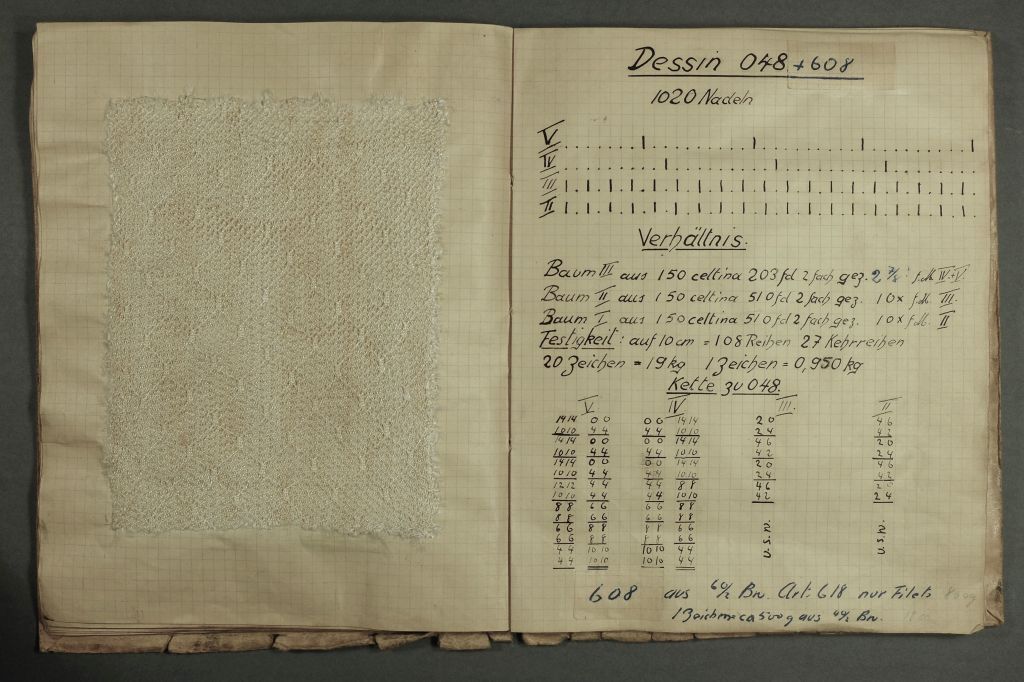 Dessin 048 + 608
1020 Nadeln
V
IV
III
II
Verhältnis.
Baum III aus 150 celtina 203 fd 2 fach gez. IV + V.
Baum II aus 150 celtina 510 fd 2 fach gez. 10x III.
Baum I aus 150 celtina 510 fd 2 fach gez. 10x II
Festigkeit: auf 10 cm = 108 Reihen 27 Kehrreihen
20 Zeichen = 19 kg 1 Zeichen = 0,950 kg
Kette zu 048.
V. IV III. II
14 14 0 0 0 0 14 14 2 0 4 6
10 10 4 4 4 4 10 10 2 4 4 2
14 14 0 0 0 0 14 14 4 6 2 0
10 10 4 4 4 4 10 10 4 2 2 4
14 14 0 0 0 0 14 14 2 0 4 6
10 10 4 4 4 4 10 10 2 4 4 2
12 12 4 4 4 4 8 8 4 6 2 0
10 10 4 4 4 4 10 10 4 2 2 4
8 8 6 6 6 6 8 8
8 8 6 6 6 6 8 8
6 6 8 8 8 8 6 6
6 6 8 8 8 8 6 6
4 4 10 10 10 10 4 4
4 4 10 10 10 10 4 4
u.s.w. u.s.w.
608 aus 60/2 Bw. Art. 618 nur Filets
1 Zeichen ca 500 g aus Bw.